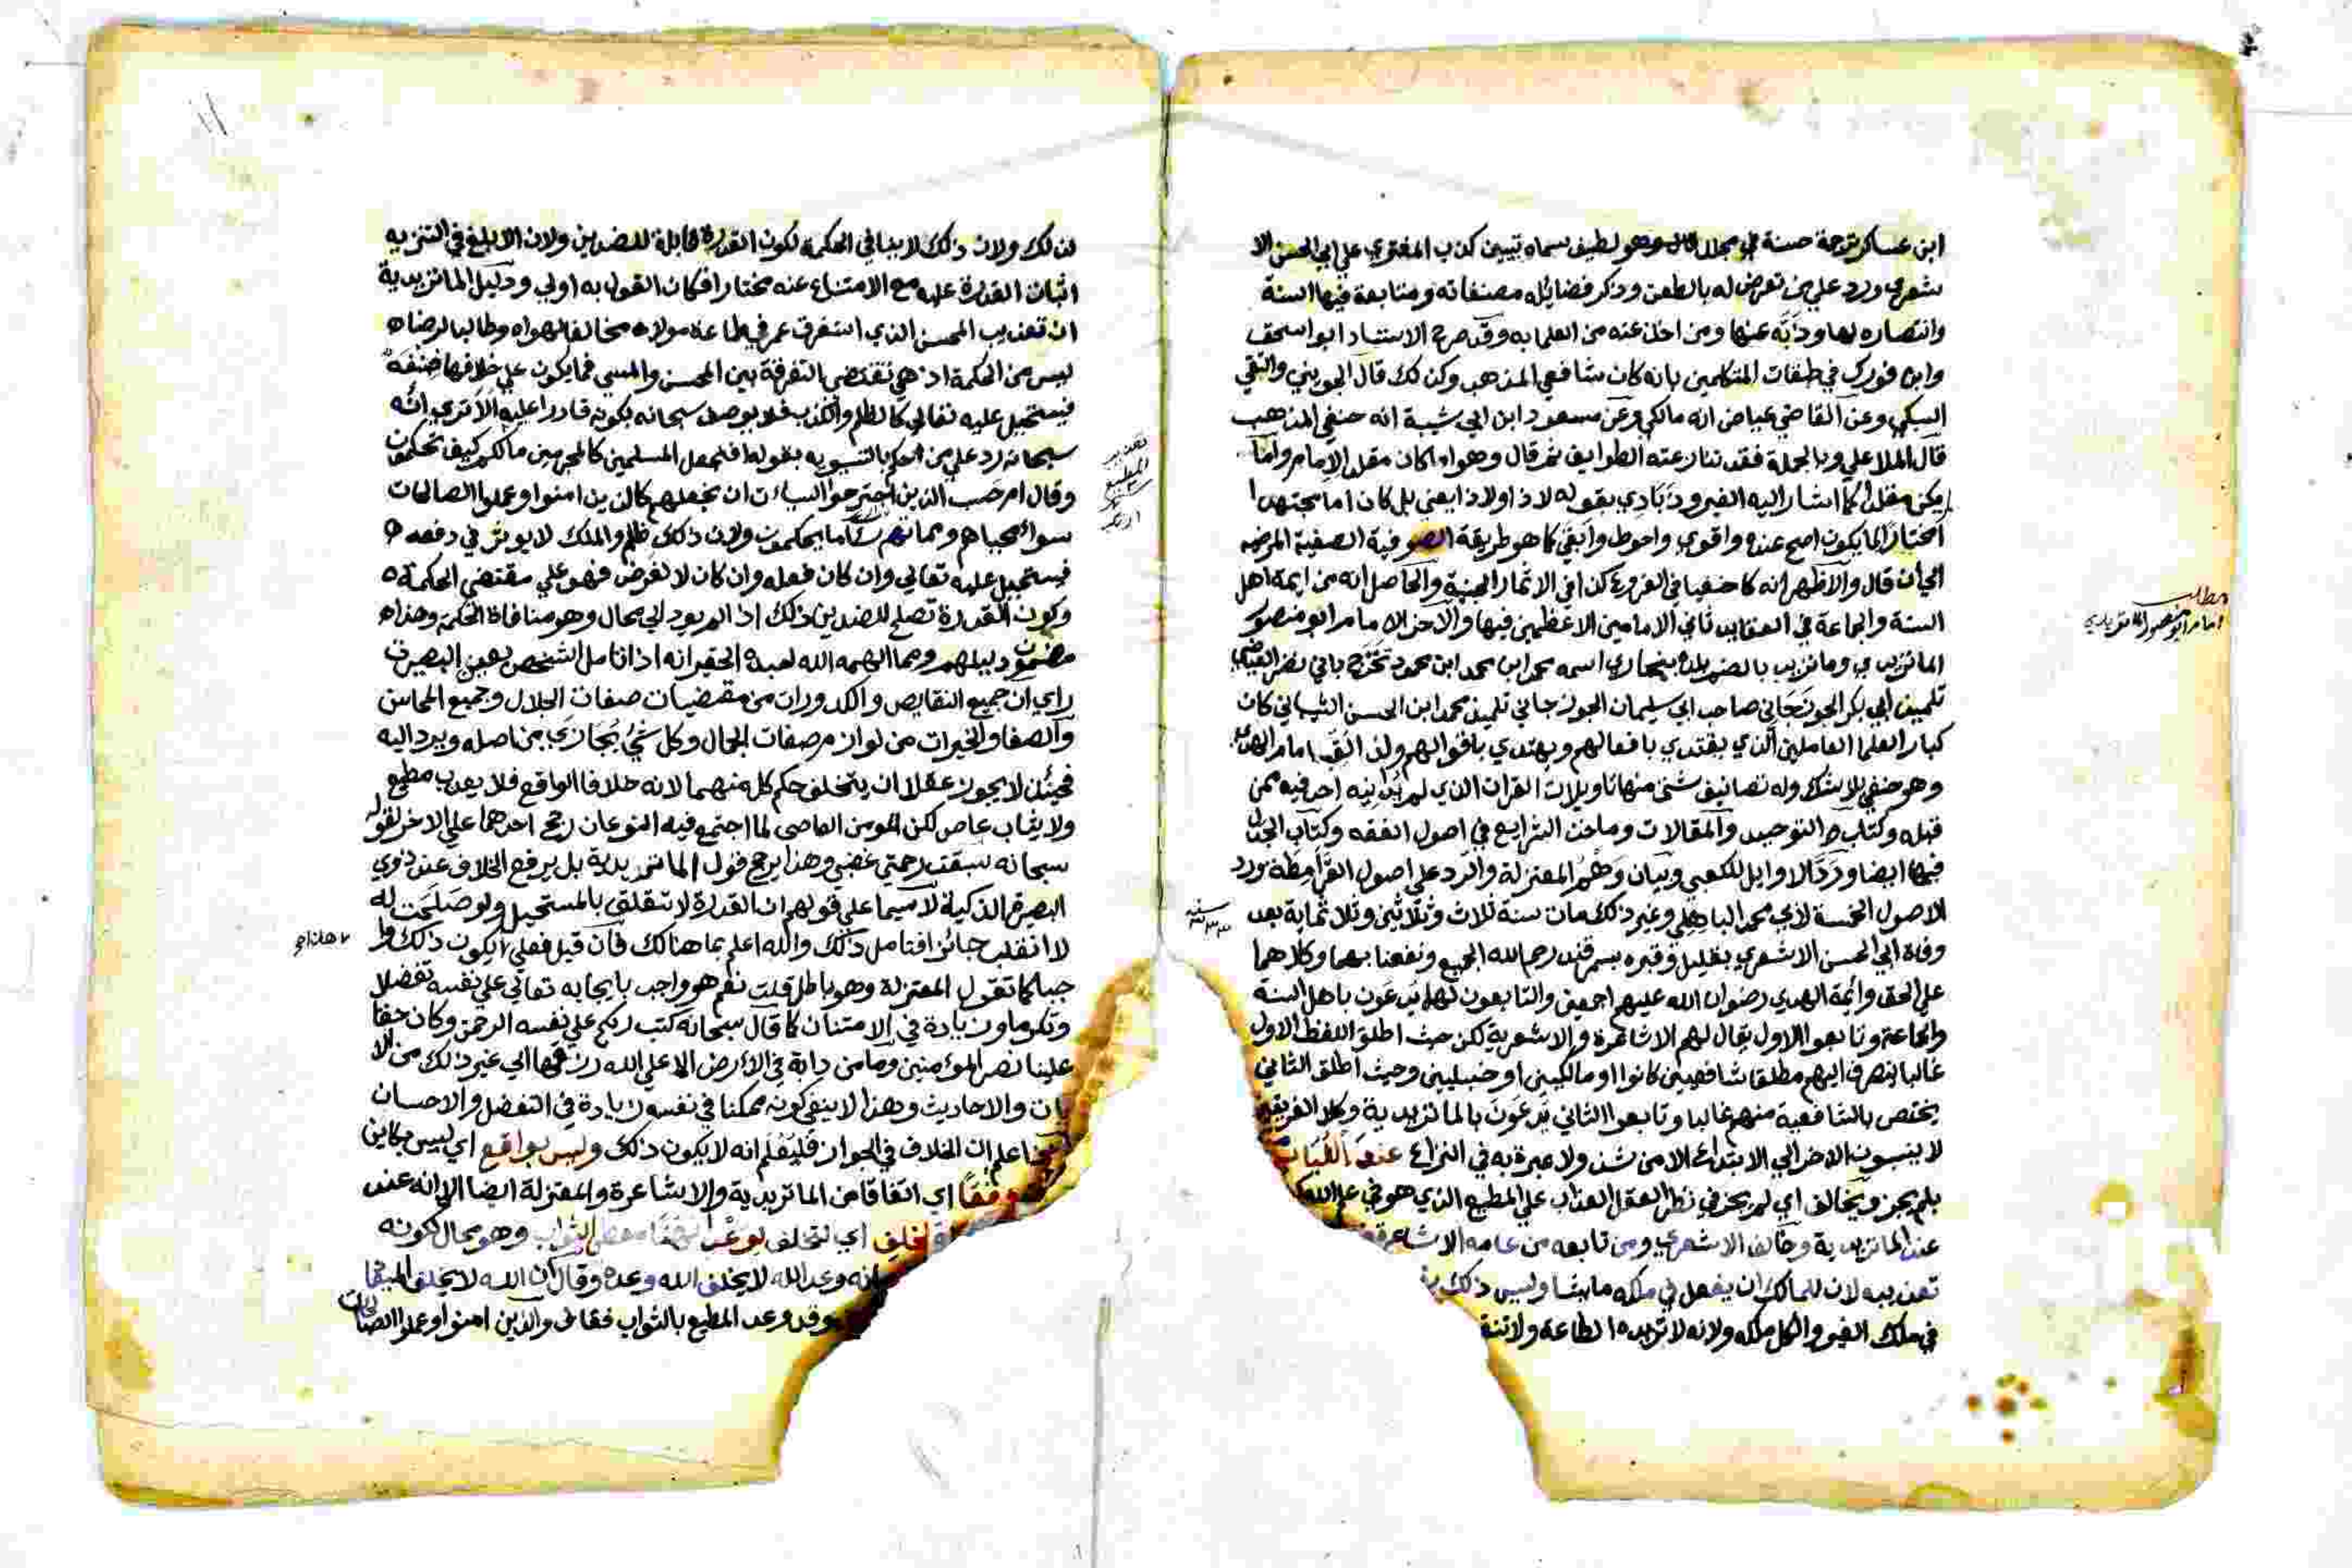 ابن عساكر ترجمة حسنة في مجلد وهو لطيف سماه تبيين كذب المفتري علي ابي الحسن الا
شعري ورد علي من تعرض له بالطعن وذكر فضايله مصنفاته ومتابعة فيها السنة
وانتصاره لها وذبه عنها ومن اخذ عنه من العلما به وقد صرح الاستاد ابو اسحق
وابن فورك في طبقات المتكلمين بانه كان شافعي المذهب وكذلك قال الجويني والتقي
السبكي وعن القاضي عياض انه مالكي وعن مسعود ابن ابي شيبة انه حنفي المذهب
قال الملا علي وبالجملة فقد تنازعته الطوايف ثم قال وهو اما كان مقلد الامام واما
يكن مقلدا كما اشار اليه الفيروزبادي بقوله لاذا ولاذا يعني بل كان اما مجتهدا
مختارا لما يكون اصح عنده واقوي واحوط وابقي كما هو طريقة الصوفية الصفية المرضية
الي ان قال والاظهر انه كا حنفيا في الفروع كذا في الاثمار الجنية والحاصل انه من ايمة اهل
السنة والجماعة في العقايد ثاني الامامين الاعظمين فيها والاخر الامام ابو منصور
مطلب
امام ابو منصور الماتريدي
الماتريدي وماتريد بالضم بلدة ببخاري اسمه محمد ابن محمد ابن محمود تخرج باني نصر العياضي
تلميذ ابي بكر الجوزجاني صاحب ابي سليمان الجوزجاني تلميذ محمد ابن الحسن الشيباني كان
كبار العلما العاملين الذي يقتدي بافعالهم ويهتدي باقوالهم ولذا لقب امام الهدي
وهو حنفي بلا شك وله تصانيف شتى منها تاويلات القران الذي لم يدانيه احد فيه ممن
قبله وكتاب التوحيد والمقالات وماخذ الشرايع في اصول الفقه وكتاب الجدل
فيها ايضا ورد الاوايل للكعبي وبيان وهم المعتزلة والرد علي اصول القرامطة ورد
الاصول الخمسة لابي محمد الباهلي وغير ذلك مات سنة ثلاث وثلاثين وثلاثماية بعد
سنة ٣٣٣
وفاة ابي الحسن الاشعري بقليل وقبره بسمرقند رحم الله الجميع ونفعنا بهما وكلاهما
علي الحق وائمة الهدي رضوان الله عليهم اجمعين والتابعون لهما يدعون باهل السنة
والجماعة وتابعوا الاول يقال لهم الاشاعرة والاشعرية لكن حيث اطلق اللفظ الاول
غالبا ينصرف اليهم مطلقا شافعيين كانوا او مالكيين او حنبليين وحيث اطلق الثاني
يختص بالشافعية منهم غالبا وتابعوا الثاني يدعون بالماتريدية وكلا الفريقين
لا ينسبون الاخر الي الابتداع الا من شذ ولا عبرة به في النزاع
بل لم يجز ويخالف اي لم يجز في نظر العقل العذاب علي المطيع الذي هو في علم الله
عند الماتريدية وخالف الاشعري ومن تابعه من عامة الاشاعرة
تعذيبه لان للمالك ان يفعل في ملكه ما يشا وليس ذلك
في ملك الغير والكل ملكه ولانه لا تزيده الطاعة ولا
لذلك ولان ذلك لا ينافي الحكمة لكون القدرة قابلة للضدين ولان الابلغ في التنزيه
اثبات القدرة عليه مع الامتناع عنه مختارا فكان القول به اولي ودليل الماتريدية
ان تعذيب المحسن الذي استغرق عمر في طاعة مولاه مخالفا لهواه وطالبا لرضاه
ليس من الحكمة اذ هي تقتضي التفرقة بين المحسن والمسي فما يكون علي خلافها صفة
فيستحيل عليه تعالي كالظلم والكذب فلا يوصف سبحانه بكونه قادرا عليه الا تري انه
سبحانه رد علي من حكم بالتسوية بقوله افنجعل المسلمين كالمجرمين مالكم كيف تحكمون
وقال ام حسب الذين اجترحوا السيئات ان نجعلهم كالذين امنوا وعملوا الصالحات
سواء محياهم ومماتهم ساء ما يحكمون ولان ذلك ظلم والملك لا يوثر في دفعه
فيستحيل عليه تعالي وان كان فعله وان كان لا لغرض فهو علي مقتضي الحكمة
وكون القدرة تصلح للضدين ذلك اذا لم يود الي محال وهو منافاة الحكمة وهذا
مضمون دليلهم ومما الهمه الله لعبده الحقير انه اذا تامل الشخص بعين البصيرت
راي ان جميع النقايص والكدورات من مقتضيات صفات الجلال وجميع المحاسن
والصفا والخيرات من لوازم صفات الجمال وكل شيء يجازي من اصله ويرد اليه
فحيئذ لا يجوز عقلا ان يتخلف حكم كل منهما لانه خلاف الواقع فلا يعذب مطيع
ولا يثاب عاص لكن المومن العاصي لما اجتمع فيه النوعان رجح احدهما علي الاخر لقوله
سبحانه سبقت رحمتي غضبي وهذا يرجح قول الماتريدية بل يرفع الخلاف عند ذوي
البصيرة الذكية لا سيما علي قولهم ان القدرة لا تتعلق بالمستحيل ولو صلحت له
لا انقلب جائزا فتامل ذلك والله اعلم بما هنالك فان قيل فعلي يكون ذلك وا
جبا كما تقول المعتزلة وهو باطل قلت نعم هو واجب بايجابه تعالي علي نفسه تفضلا
وتكرما وزيادة في الامتنان كما قال سبحانه كتب ربكم علي نفسه الرحمة وكان حقا
علينا نصر المؤمنين وما من دابة في الارض الا علي الله رزقها الي غير ذلك من الا
يات والاحاديث وهذا لا ينفي كونه ممكنا في نفسه زيادة في التفضل والاحسان
اعلم ان الخلاف في الجواز فليعلم انه لا يكون ذلك وليس بواقع اي ليس بكاين
وفقا اي اتفاقا من الماتريدية والاشاعرة والمعتزلة ايضا الا انه عند
اي لتخلف لوعد الثواب وهو محال لكونه
وعد الله لا يخلف الله وعده وقال ان الله لا يخلف الميعا
وقد وعد المطيع بالثواب فقال والذين امنوا وعملوا الصالحات